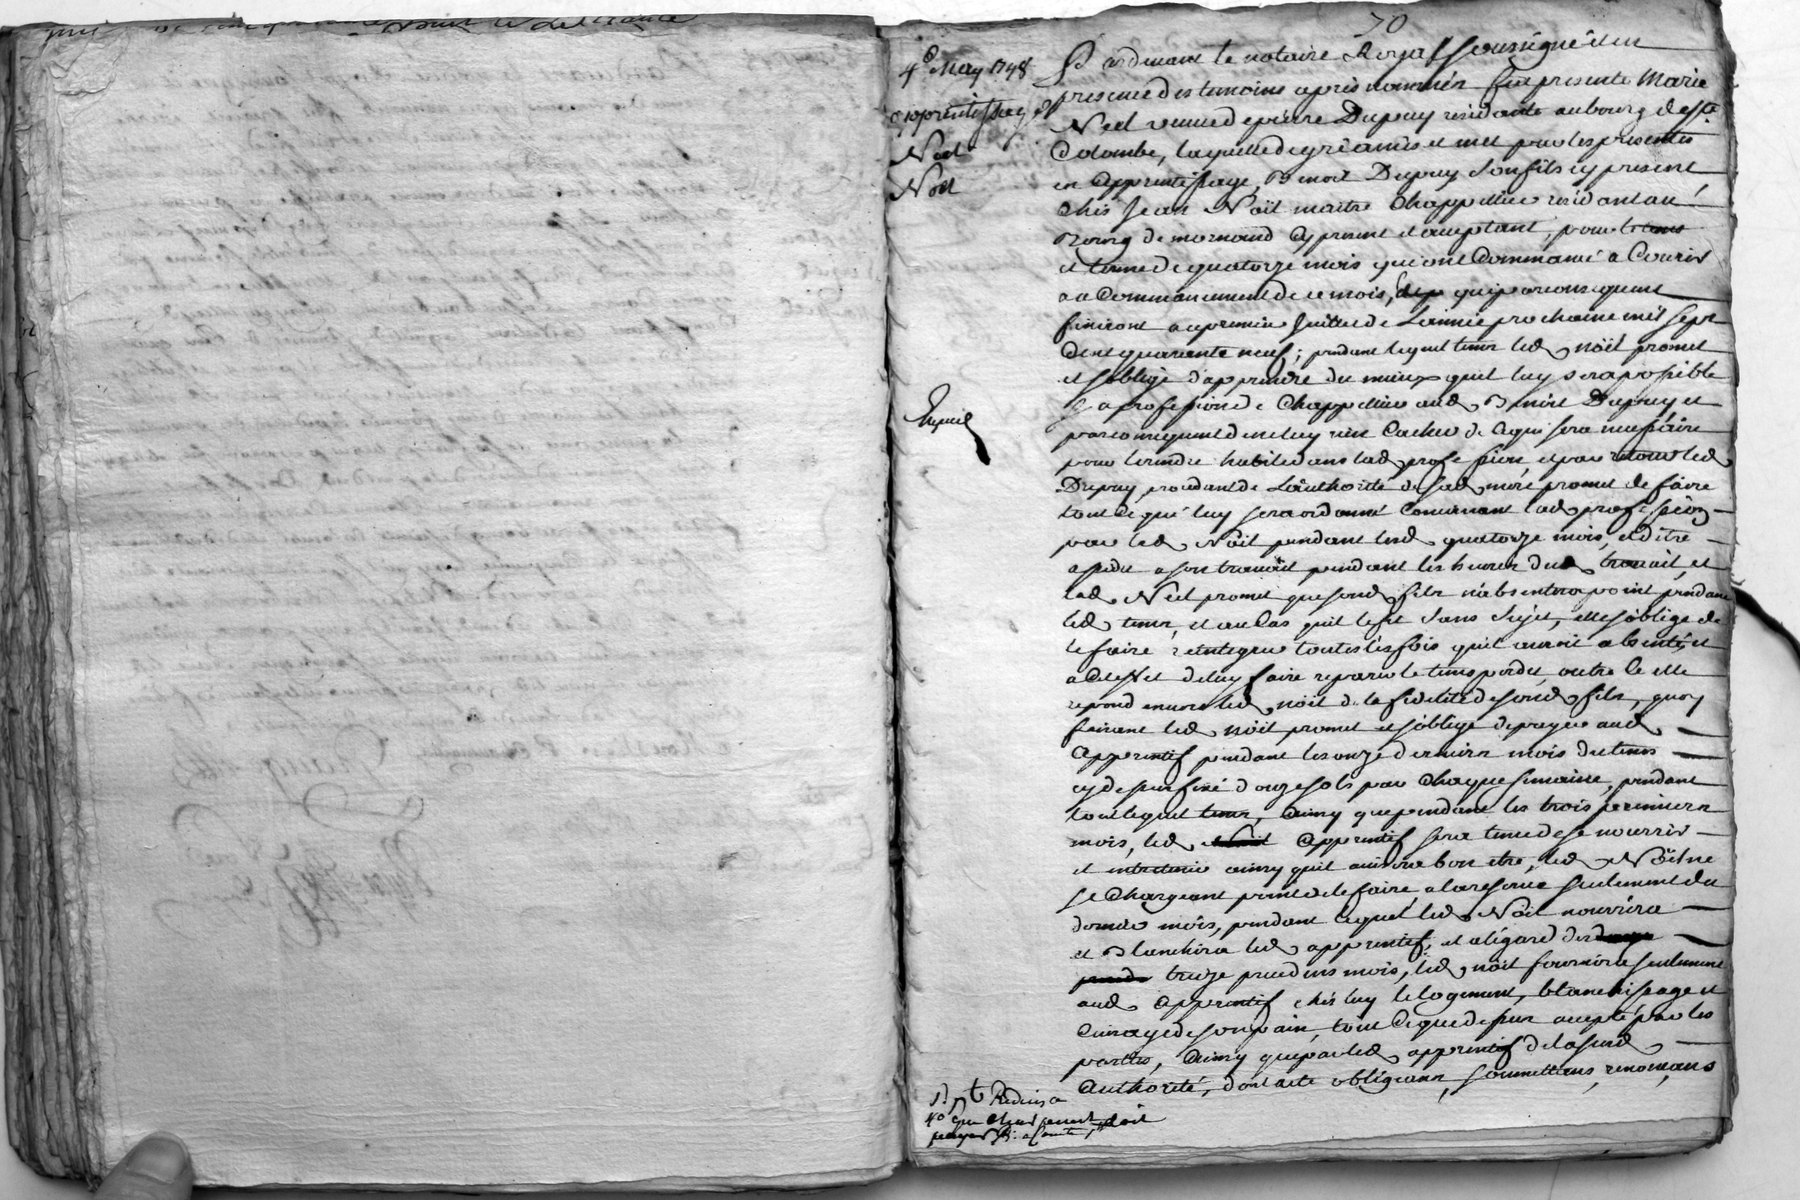 70
4e May 1748
apprentissage
Noel
Noël
Expedié
Pardevant le notaire Royal soussigné et en
presence des temoins apres nommés fut presente Marie
Noel veuve de pierre Dupuy residante au bourg de Ste
Colombe, laquelle de gré a mis et met par les presentes
en apprentissage, Benoit Dupuy son fils cy present
chés Jean Noël maitre Chappellier residant au
Bourg de mornand Cy present et acceptant, pour le tems
et terme de quatorze mois qui ont Commancé a Courir
au Commancement de ce mois, qui par consequent
finiront au premier Juillet de L'année prochaine mil sept
Cent quarante neuf; pendant lequel tems led. Noël promet
et s'oblige d'apprendre du mieux quil luy sera possible
La profession de Chappellier aud. Benoit Dupuy et
par consequent de ne luy rien Cacher de Ce qui sera necessaire
pour le rendre habile dans lad. profession, et par retour led.
Dupuy procedant de L'authorité de sad. mere promet de faire
tout ce qui luy sera ordonné Concernant lad. profession
par led. Noël pendant lesd. quatorze mois, et d'être
assidu a son travail pendant les heures dud. travail, et
lad. Noel promet que sond. fils n'absentera point pendant
led. tems, et au Cas quil le fit sans sujet, elle s'oblige de
le faire reintegrer toutes les fois quil auroit absenté, et
a cet effet de luy faire reparer le tems perdu, outre ce elle
repond envers led. Noël de la fidelité de sond. fils, quoy
faisant led. Noël promet et s'oblige de payer aud.
Apprentif pendant les onze derniers mois du tems
cy dessus fixé douze sols par Chaque semaine, pendant
tout lequel tems, Ainsy que pendant les trois premiers
mois, led. Apprentif sera tenu de se nourrir
et entretenir ainsy quil avisera bon etre, led. Noël ne
se Chargeant point de le faire, a la reserve seulement du
dernier mois, pendant lequel led. Noël nourrira
et Blanchira led. apprentif, et a l'egard des
treize precedens mois, led. Noël fournira seulement
aud. apprentif chés luy le logement, blanchissage et
Cuisage de son pain, tout Ce que dessus accepté par les
parties, Ainsy que par led. apprentif de la susd.
authorité, dont acte obligeans, soumettans, renonçans